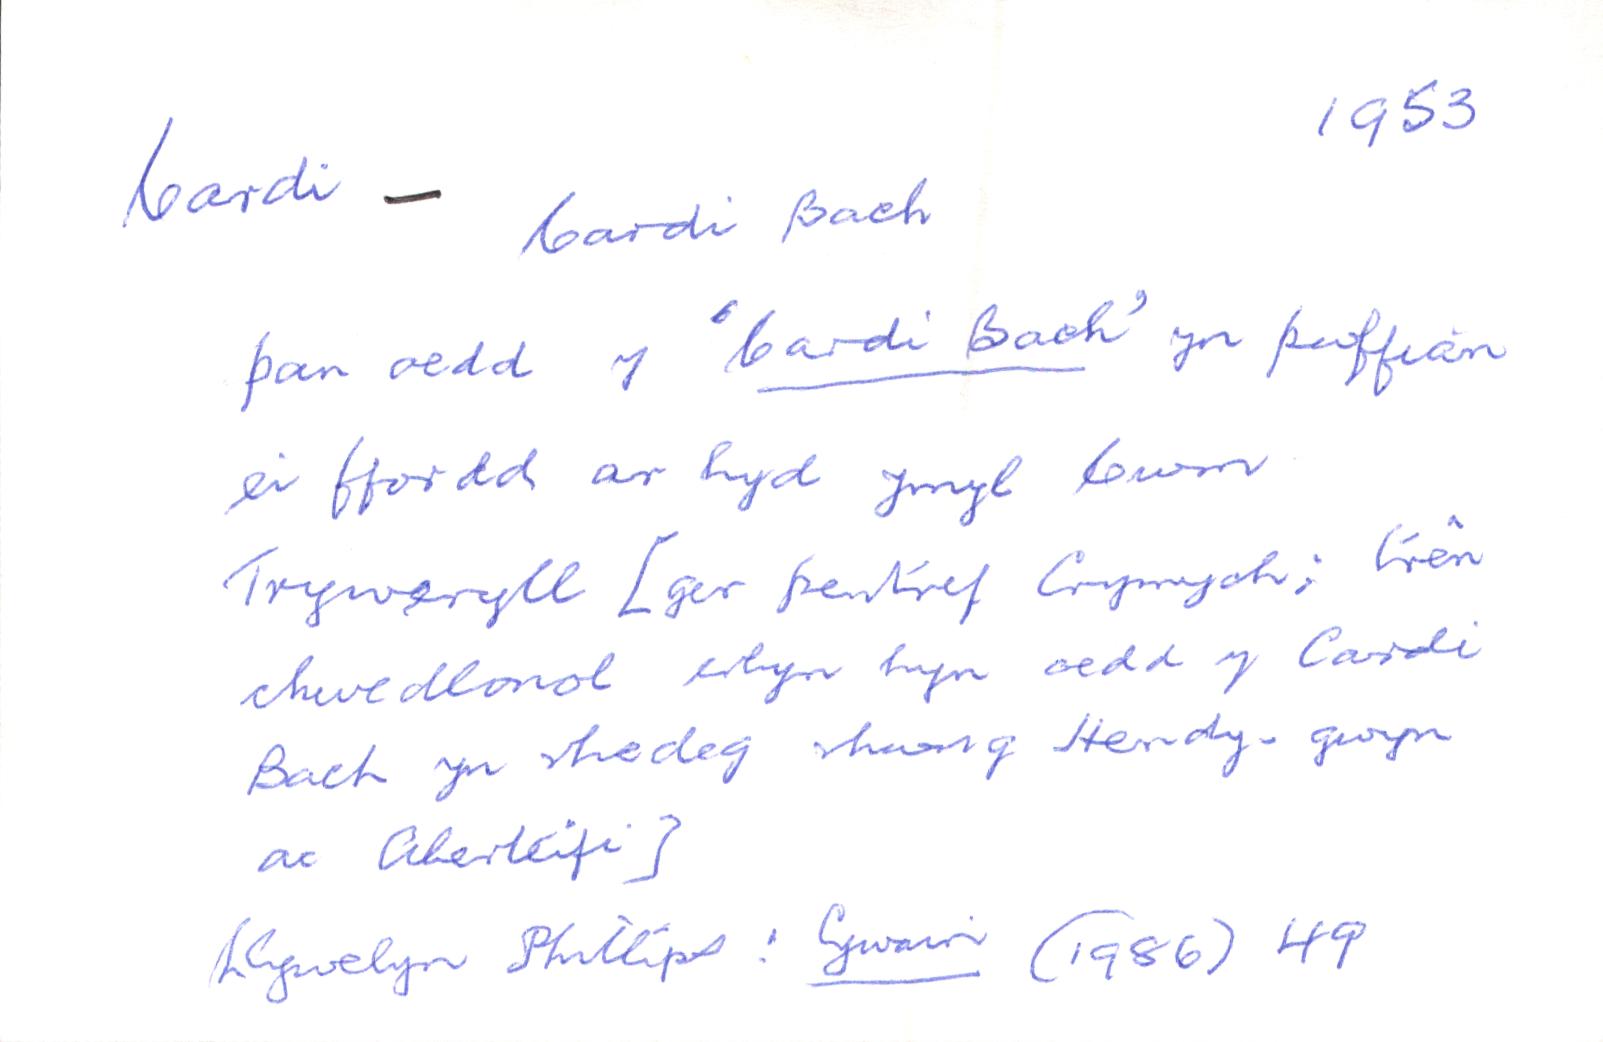 1953
Cardi — Cardi Bach
pan oedd y 'Cardi Bach' yn pwffian
ei ffordd ar hyd ymyl Cwm
Tryweryll [ger pentref Crymych; trên
chwedlonol erbyn hyn oedd y Cardi
Bach yn rhedeg rhwng Hendy-gwyn
ac Aberteifi]
Llywelyn Phillips : Cywain (1986) 49